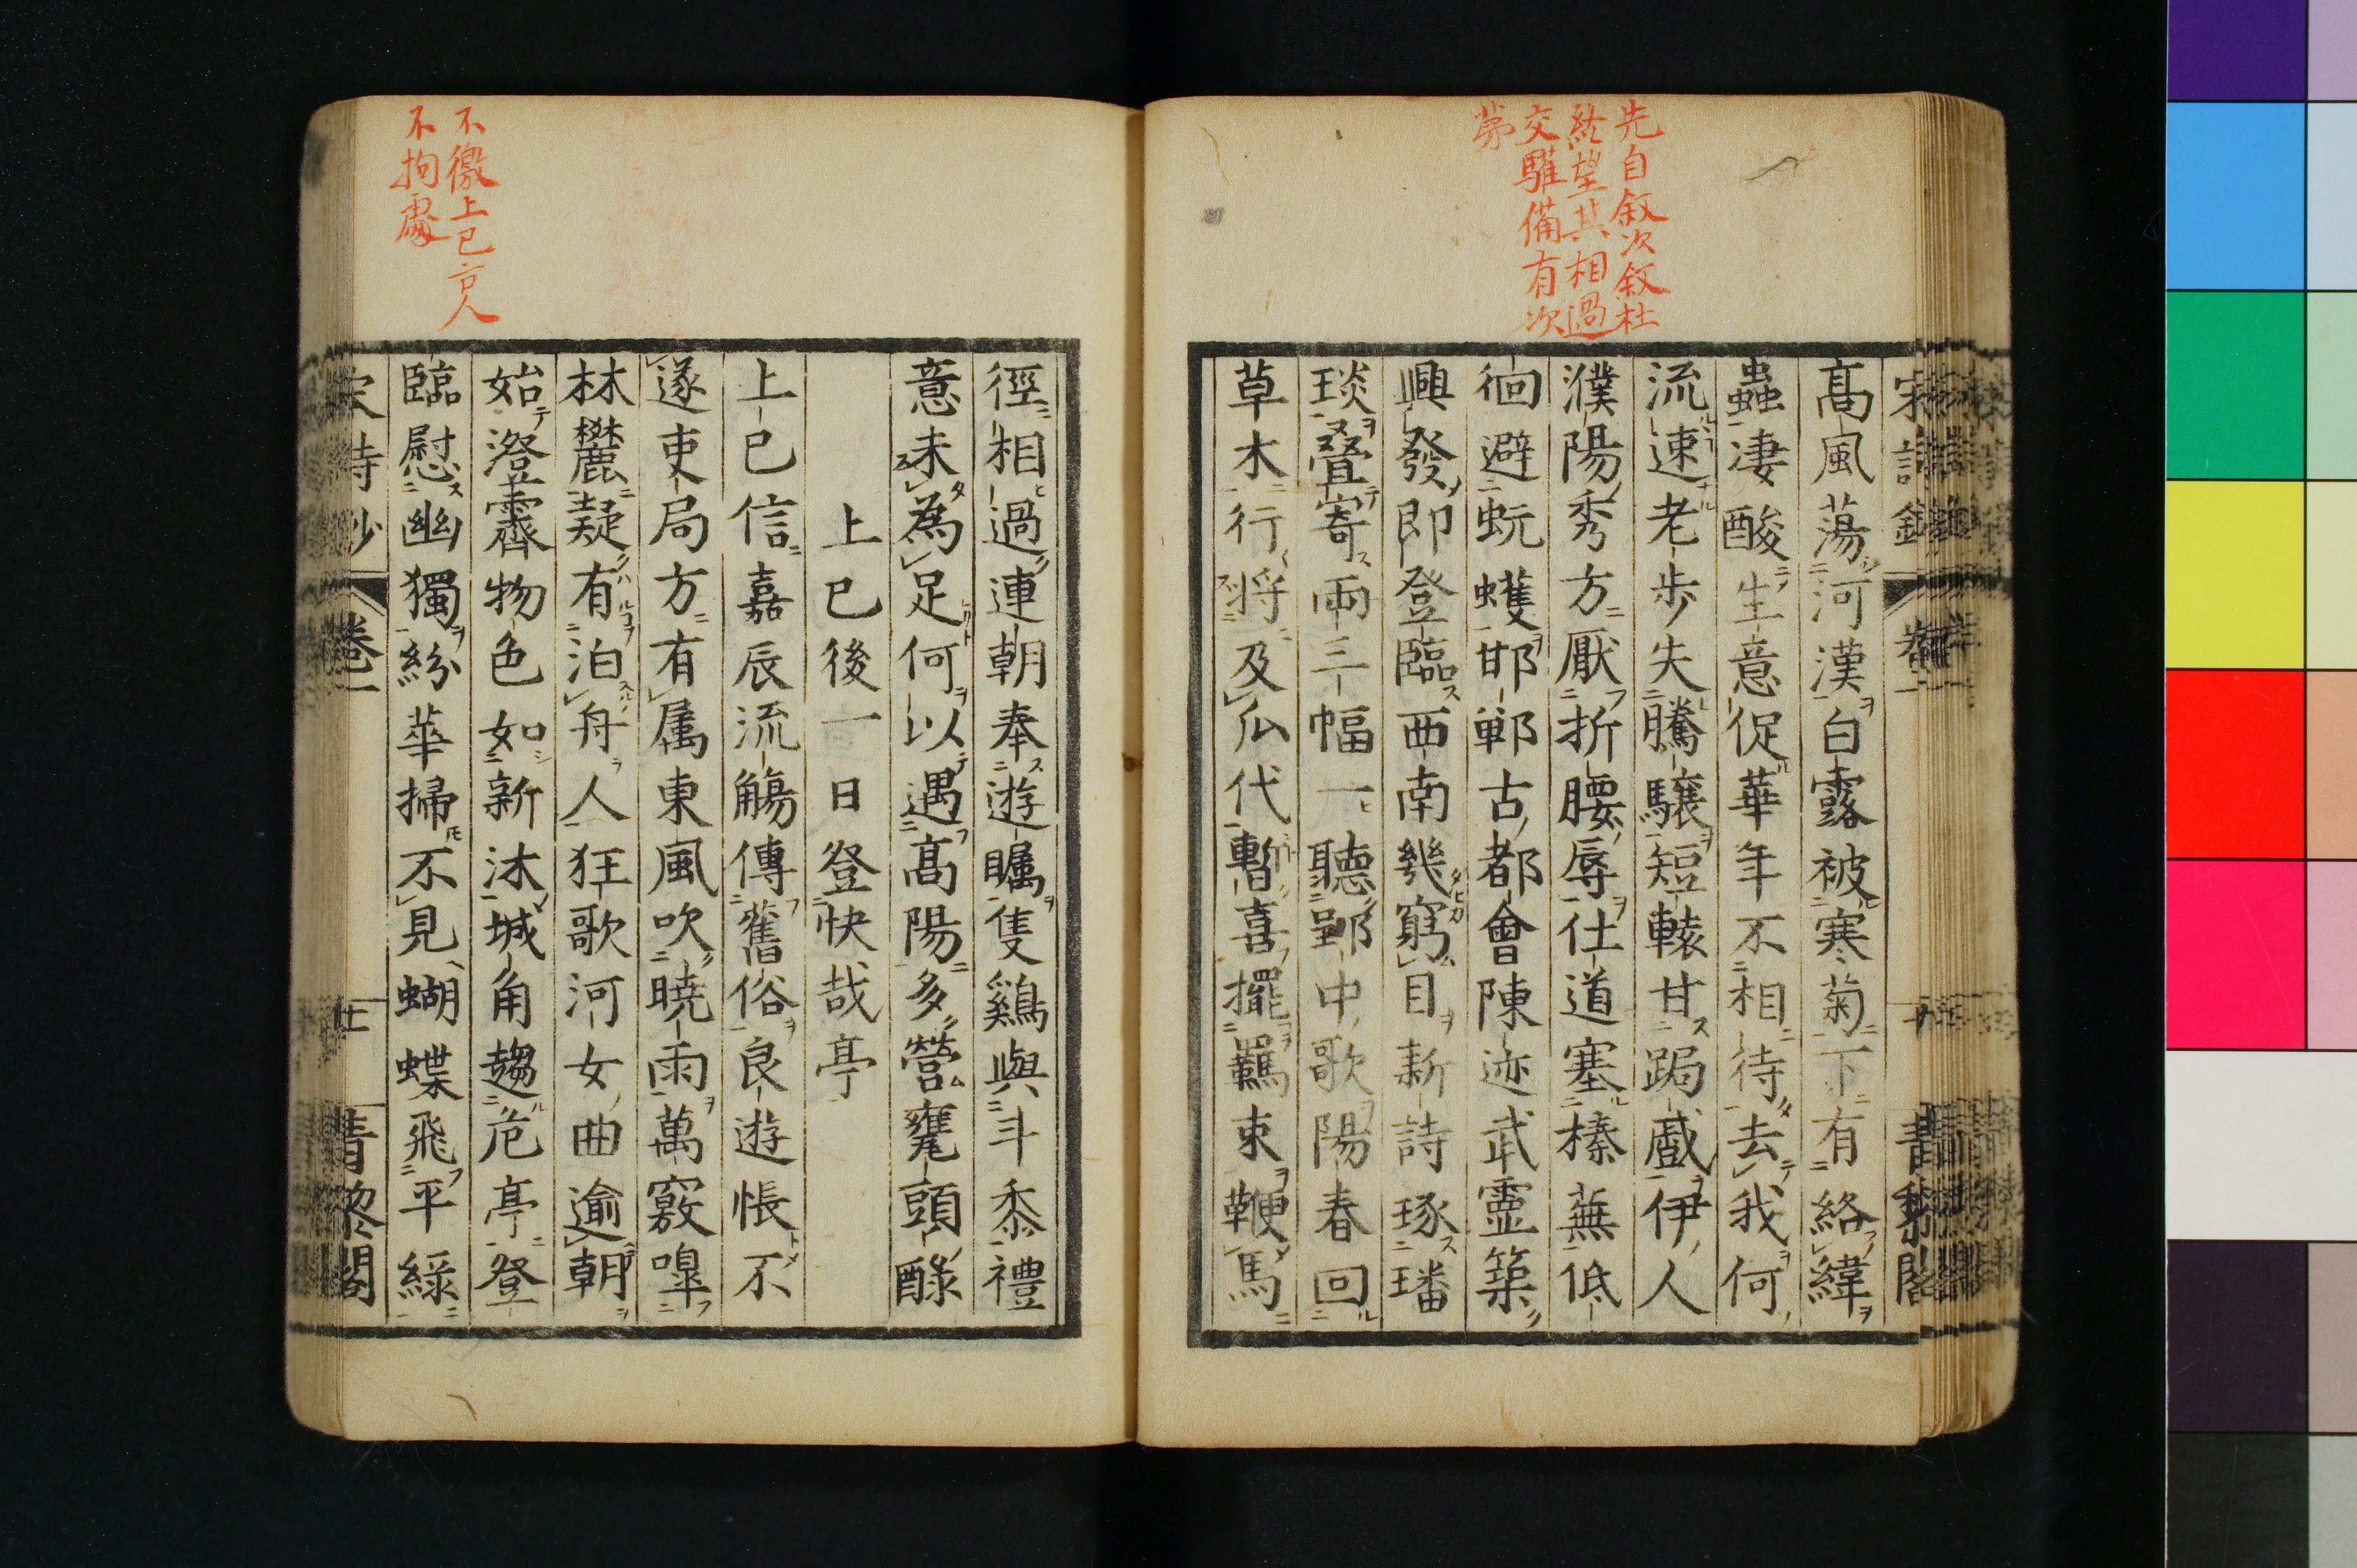 先自敘次敘杜
終望其相過
交驩備有次
第
宋詩鈔 卷一 十 青黎閣
髙風蕩河漢白露被寒菊下有絡緯
蟲凄酸生意促華年不相待去我何
流速老步失騰驤短轅甘跼戲伊人
濮陽秀方厭折腰辱仕道塞榛蕪低
徊避蚖蠖邯鄲古都會陳迹武靈築
興發即登臨西南幾窮目新詩琢璠
琰疊寄兩三幅一聽郢中歌陽春回
草木行將及瓜代暫喜擺羈束鞭馬
不徼上巳古人
不拘處
徑相過連朝奉遊矚隻鷄與斗黍禮
意未為足何以遇髙陽多營甕頭醁
上巳後一日登快哉亭
上巳信嘉辰流觴傳舊俗良遊悵不
遂吏局方有属東風吹曉雨萬竅嘷
林麓疑有泊舟人狂歌河女曲逾朝
始澄霽物色如新沐城角趨危亭登
臨慰幽獨紛華掃不見蝴蝶飛平綠
宋詩鈔 卷一 十一 青黎閣